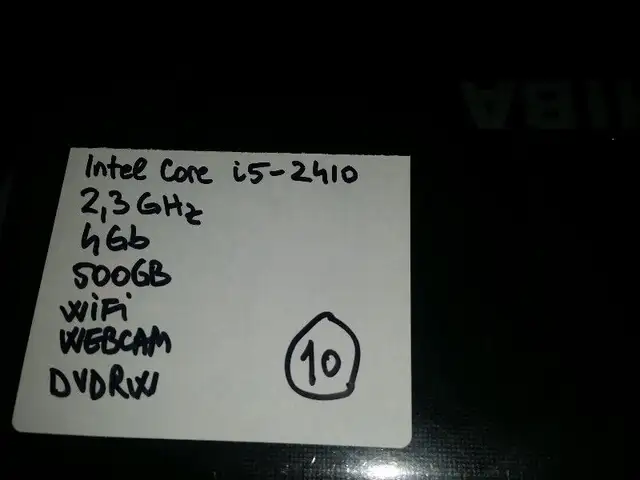 HIBA
Intel Core i5-2410
2,3 GHz
4Gb
500GB
WiFi
WEBCAM
DVDRW
10